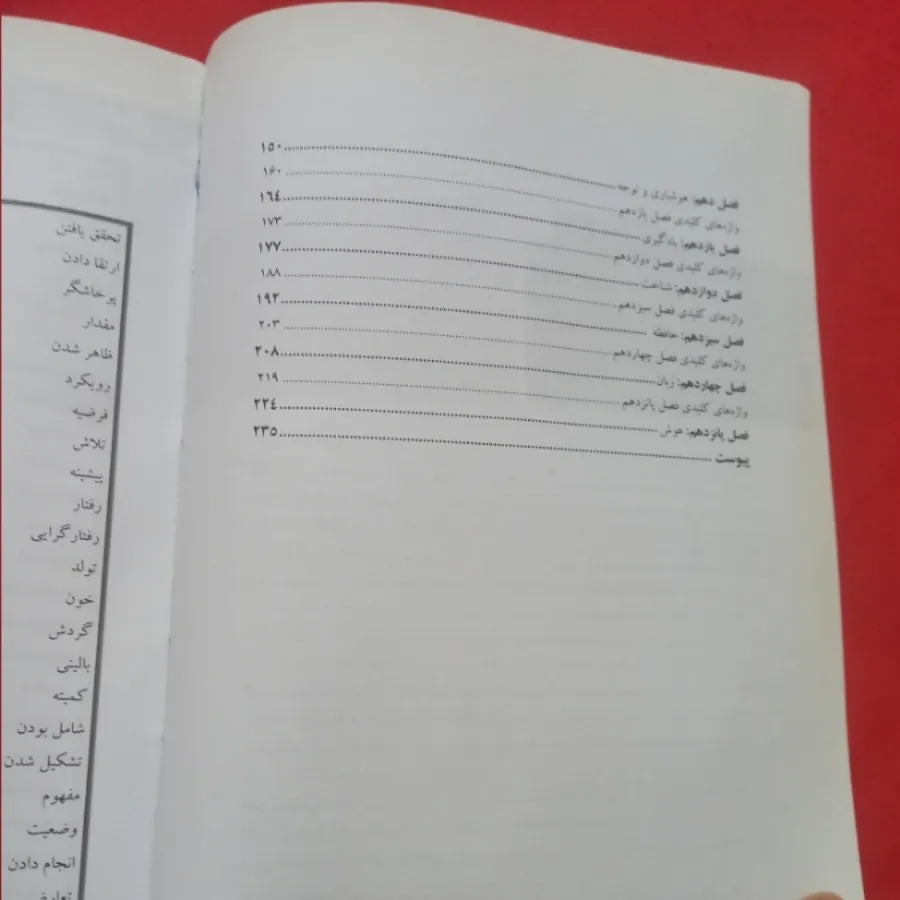 فصل دهم: هوشیاری و توجه ........ ۱۵۰
واژه‌های کلیدی فصل یازدهم ........ ۱۶۰
فصل یازدهم: یادگیری ........ ۱۶۴
واژه‌های کلیدی فصل دوازدهم ........ ۱۷۳
فصل دوازدهم: شناخت ........ ۱۷۷
واژه‌های کلیدی فصل سیزدهم ........ ۱۸۸
فصل سیزدهم: حافظه ........ ۱۹۲
واژه‌های کلیدی فصل چهاردهم ........ ۲۰۳
فصل چهاردهم: زبان ........ ۲۰۸
واژه‌های کلیدی فصل پانزدهم ........ ۲۱۹
فصل پانزدهم: هوش ........ ۲۲۴
پیوست ........ ۲۳۵
تحقق یافتن
ارتقا دادن
پرخاشگر
مقدار
ظاهر شدن
رویکرد
فرضیه
تلاش
پیشینه
رفتار
رفتارگرایی
تولد
خون
گردش
بالینی
کمیته
شامل بودن
تشکیل شدن
مفهوم
وضعیت
انجام دادن